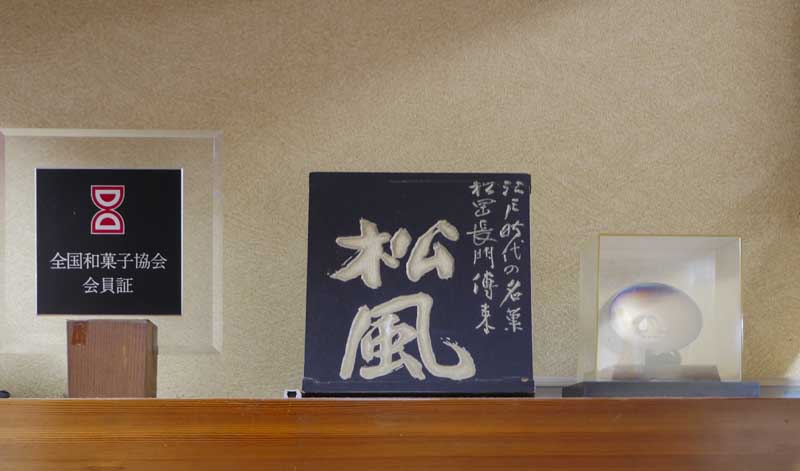 全国和菓子協会
会員証
江戸時代の名菓
松岡長門傳来
松風